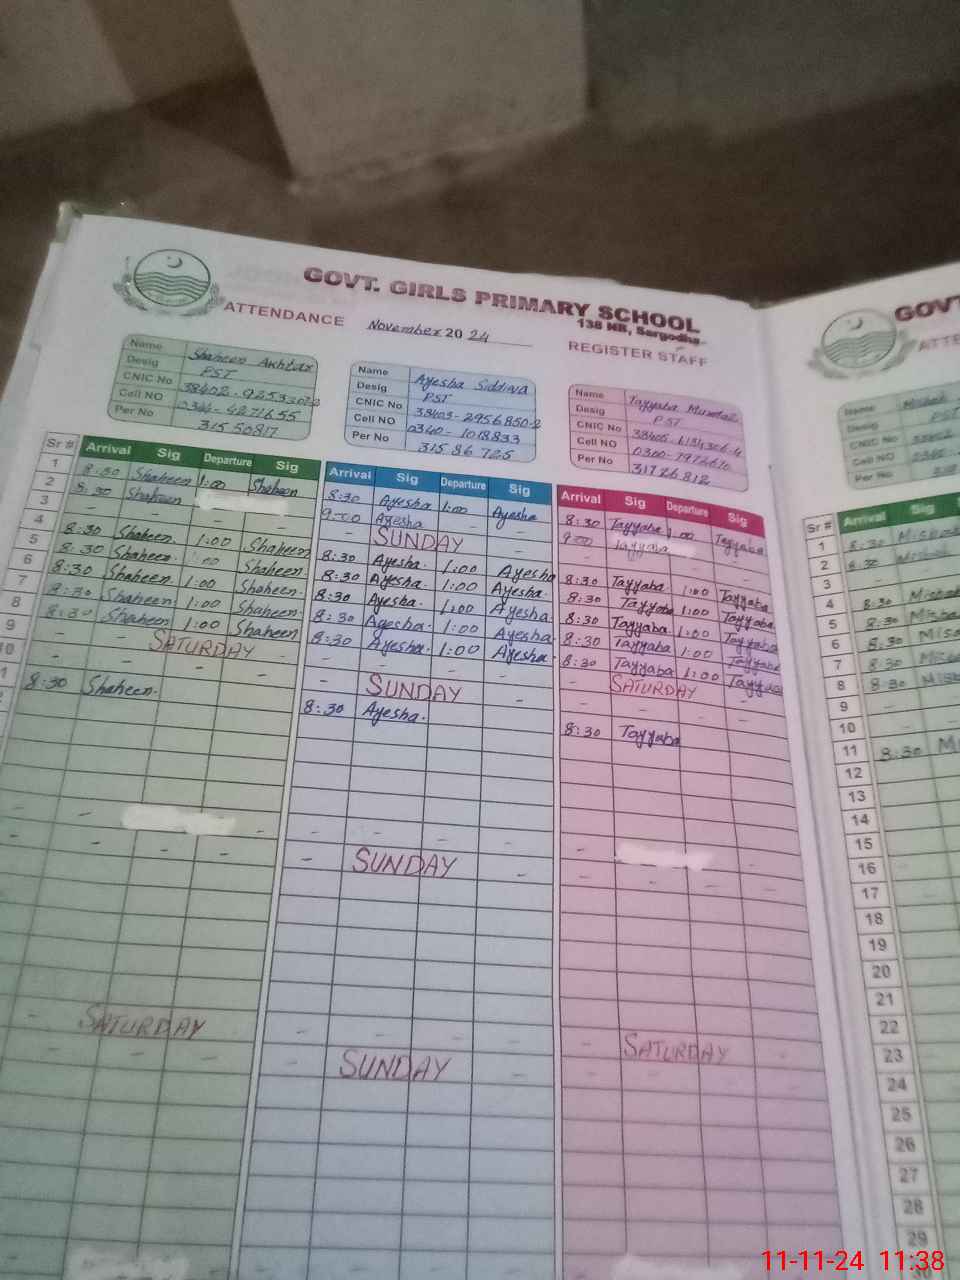 GOVT. GIRLS PRIMARY SCHOOL
138 NB, Sargodha.
ATTENDANCE November 2024 REGISTER STAFF
Name Shaheen Akhtar
Desig PST
CNIC No
Cell NO
Per No 31550817
Name Ayesha
Desig PST
CNIC No 38403-2956850-2
Cell NO 0340-1018833
Per No 31586725
Name Tayyaba
Desig PST
CNIC No
Cell NO
Per No 31726812
Sr # Arrival Sig Departure Sig
1 8:30 Shaheen 1:00 Shaheen
2 8:30 Shaheen
3 - - - -
4 8:30 Shaheen. 1:00 Shaheen
5 8:30 Shaheen. Shaheen
6 8:30 Shaheen. 1:00 Shaheen.
7 8:30 Shaheen 1:00 Shaheen.
8 8:30 Shaheen 1:00 Shaheen
9 - SATURDAY -
10 - - - -
8:30 Shaheen.
- -
- - - -
- SATURDAY
- - - -
Arrival Sig Departure Sig
8:30 Ayesha 1:00 Ayesha
9:00 Ayesha
- SUNDAY -
8:30 Ayesha. 1:00 Ayesha
8:30 Ayesha. 1:00 Ayesha.
8:30 Ayesha. 1:00 Ayesha
8:30 Ayesha. 1:00 Ayesha.
8:30 Ayesha. 1:00 Ayesha.
- - - -
- SUNDAY -
8:30 Ayesha.
- - - -
- SUNDAY -
- - - -
- SUNDAY -
Arrival Sig Departure Sig
8:30 Tayyaba 1:00 Tayyaba
9:00 Tayyaba
- - - -
8:30 Tayyaba 1:00 Tayyaba
8:30 Tayyaba 1:00 Tayyaba
8:30 Tayyaba 1:00 Tayyaba
8:30 Tayyaba 1:00 Tayyaba
8:30 Tayyaba 1:00 Tayyaba
- SATURDAY -
- - - -
8:30 Tayyaba
- -
- - - -
- SATURDAY -
- - - -
GOVT
ATTE
Name
Desig PST
CNIC No
Cell NO
Per No
Sr # Arrival Sig
1 8:30
2 8:30
3
4 8:30
5 8:30
6 8:30
7 8:30
8 8:30
9
10
11 8:30
12
13
14
15
16
17
18
19
20
21
22
23
24
25
26
27
28
29
30
11-11-24 11:38